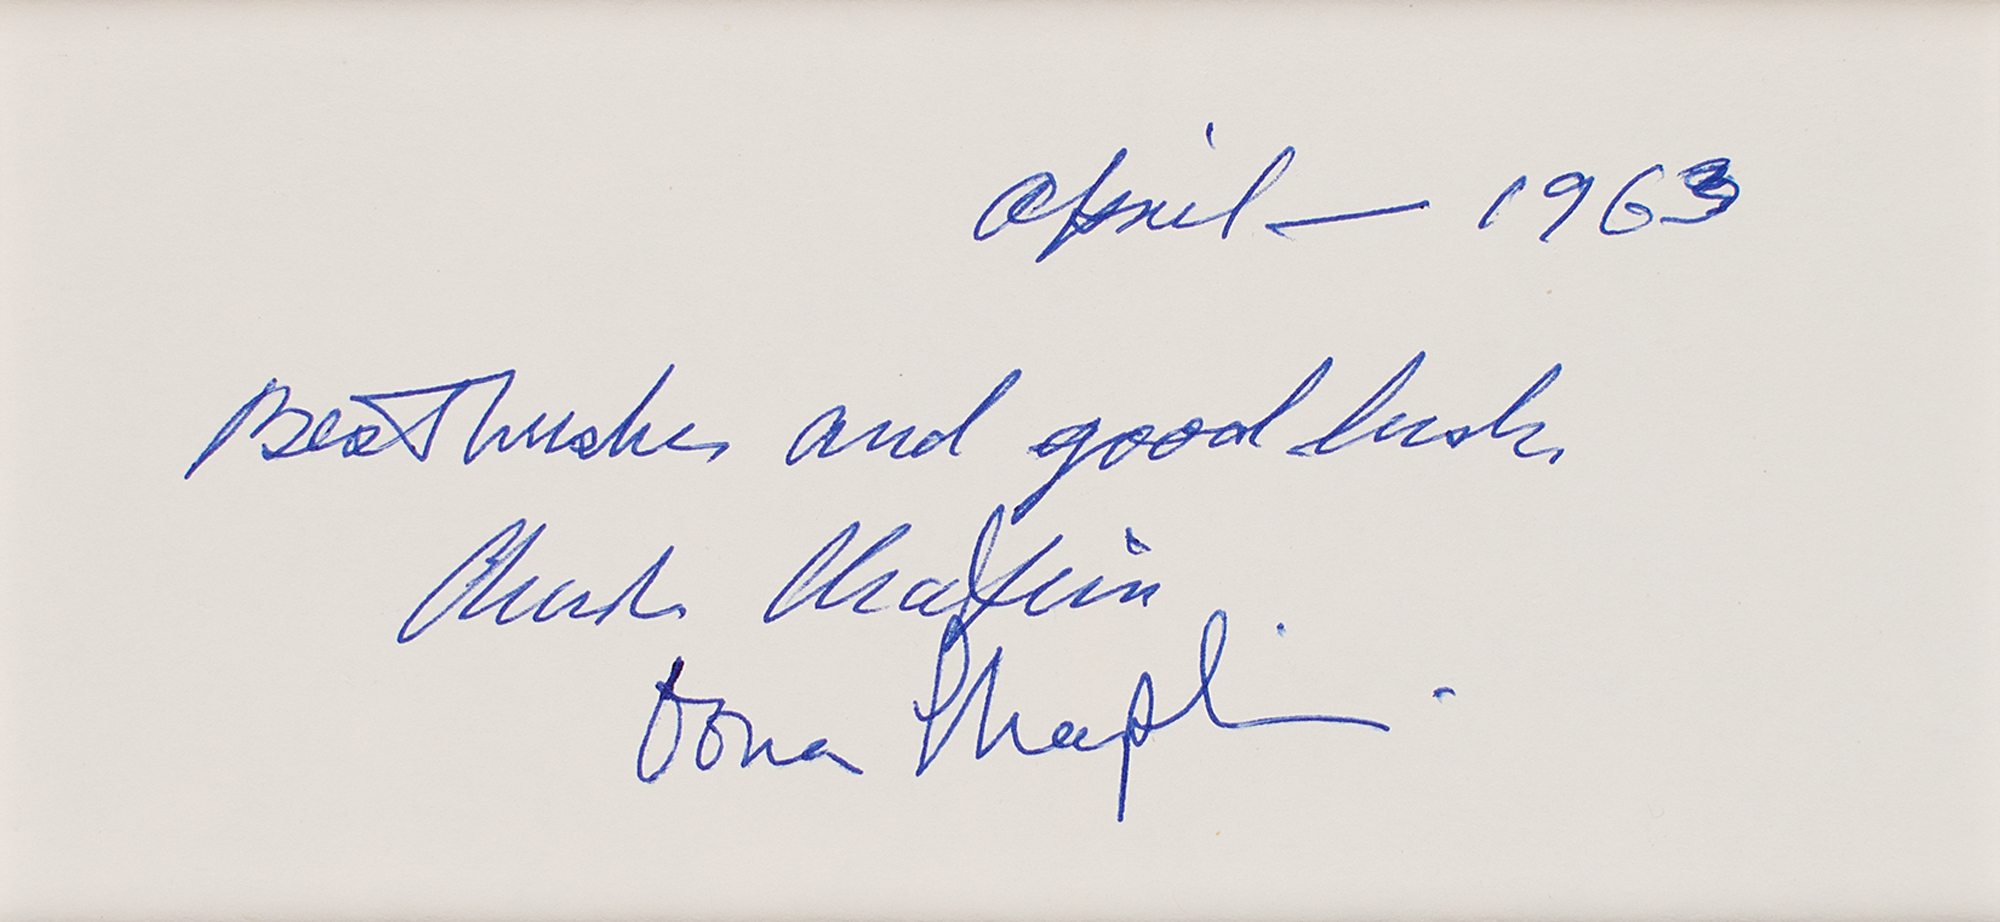 April — 1963
Best wishes and good luck,
Charlie Chaplin
Oona Chaplin